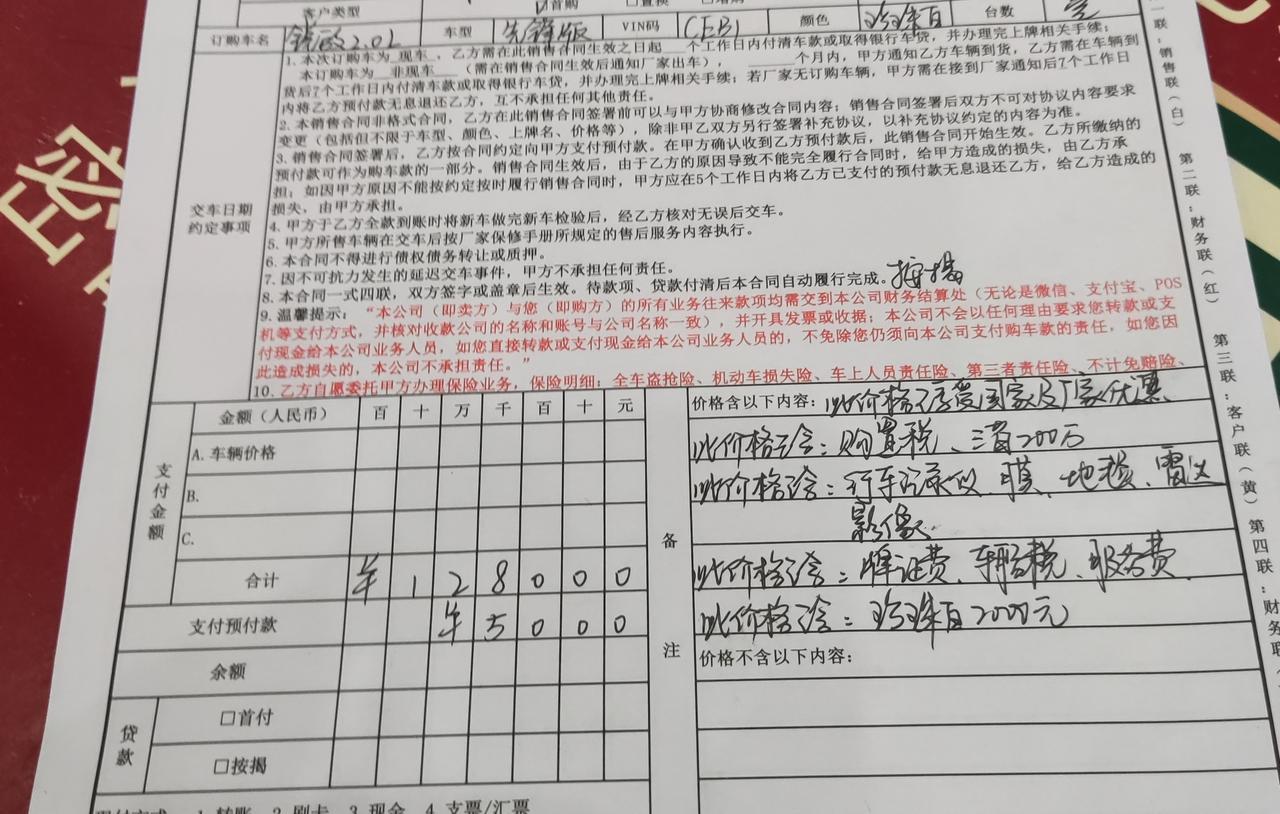 客户类型 ☑首购 □置换 □增购
订购车名 锐放2.0L 车型 先锋版 VIN码 CEB1 颜色 珍珠白 台数 壹
1. 本次订购车为 现车 ，乙方需在此销售合同生效之日起 个工作日内付清车款或取得银行车贷，并办理完上牌相关手续；
本订购车为 非现车 （需在销售合同生效后通知厂家出车）， 个月内，甲方通知乙方车辆到货，乙方需在车辆到
货后7个工作日内付清车款或取得银行车贷，并办理完上牌相关手续；若厂家无订购车辆，甲方需在接到厂家通知后7个工作日
内将乙方预付款无息退还乙方，互不承担任何其他责任。
2. 本销售合同非格式合同，乙方在此销售合同签署前可以与甲方协商修改合同内容；销售合同签署后双方不可对协议内容要求
变更（包括但不限于车型、颜色、上牌名、价格等），除非甲乙双方另行签署补充协议，以补充协议约定的内容为准。
3. 销售合同签署后，乙方按合同约定向甲方支付预付款。在甲方确认收到乙方预付款后，此销售合同开始生效。乙方所缴纳的
预付款可作为购车款的一部分。销售合同生效后，由于乙方的原因导致不能完全履行合同时，给甲方造成的损失，由乙方承
担；如因甲方原因不能按约定按时履行销售合同时，甲方应在5个工作日内将乙方已支付的预付款无息退还乙方，给乙方造成的
损失，由甲方承担。
交车日期
约定事项
4. 甲方于乙方全款到账时将新车做完新车检验后，经乙方核对无误后交车。
5. 甲方所售车辆在交车后按厂家保修手册所规定的售后服务内容执行。
6. 本合同不得进行债权债务转让或质押。
7. 因不可抗力发生的延迟交车事件，甲方不承担任何责任。
8. 本合同一式四联，双方签字或盖章后生效。待款项、贷款付清后本合同自动履行完成。按揭
9. 温馨提示：“本公司（即卖方）与您（即购方）的所有业务往来款项均需交到本公司财务结算处（无论是微信、支付宝、POS
机等支付方式，并核对收款公司的名称和账号与公司名称一致），并开具发票或收据；本公司不会以任何理由要求您转款或支
付现金给本公司业务人员，如您直接转款或支付现金给本公司业务人员的，不免除您仍须向本公司支付购车款的责任，如您因
此造成损失的，本公司不承担责任。”
10. 乙方自愿委托甲方办理保险业务，保险明细：全车盗抢险、机动车损失险、车上人员责任险、第三者责任险、不计免赔险、
支付金额
金额（人民币） 百 十 万 千 百 十 元
A. 车辆价格
B.
C.
合计 ¥ 1 2 8 0 0 0
支付预付款 ¥ 5 0 0 0
余额
贷款
□首付
□按揭
备注
价格含以下内容：此价格已享受国家及厂家优惠
此价格含：购置税、三者200万
此价格含：行车记录仪、膜、地毯、雷达
影像
此价格含：牌证费、车船税、服务费
此价格含：珍珠白2000元
价格不含以下内容：
1. 转账 2. 刷卡 3. 现金 4. 支票/汇票
一联：销售联（白）
第二联：财务联（红）
第三联：客户联（黄）
第四联：财务联
密